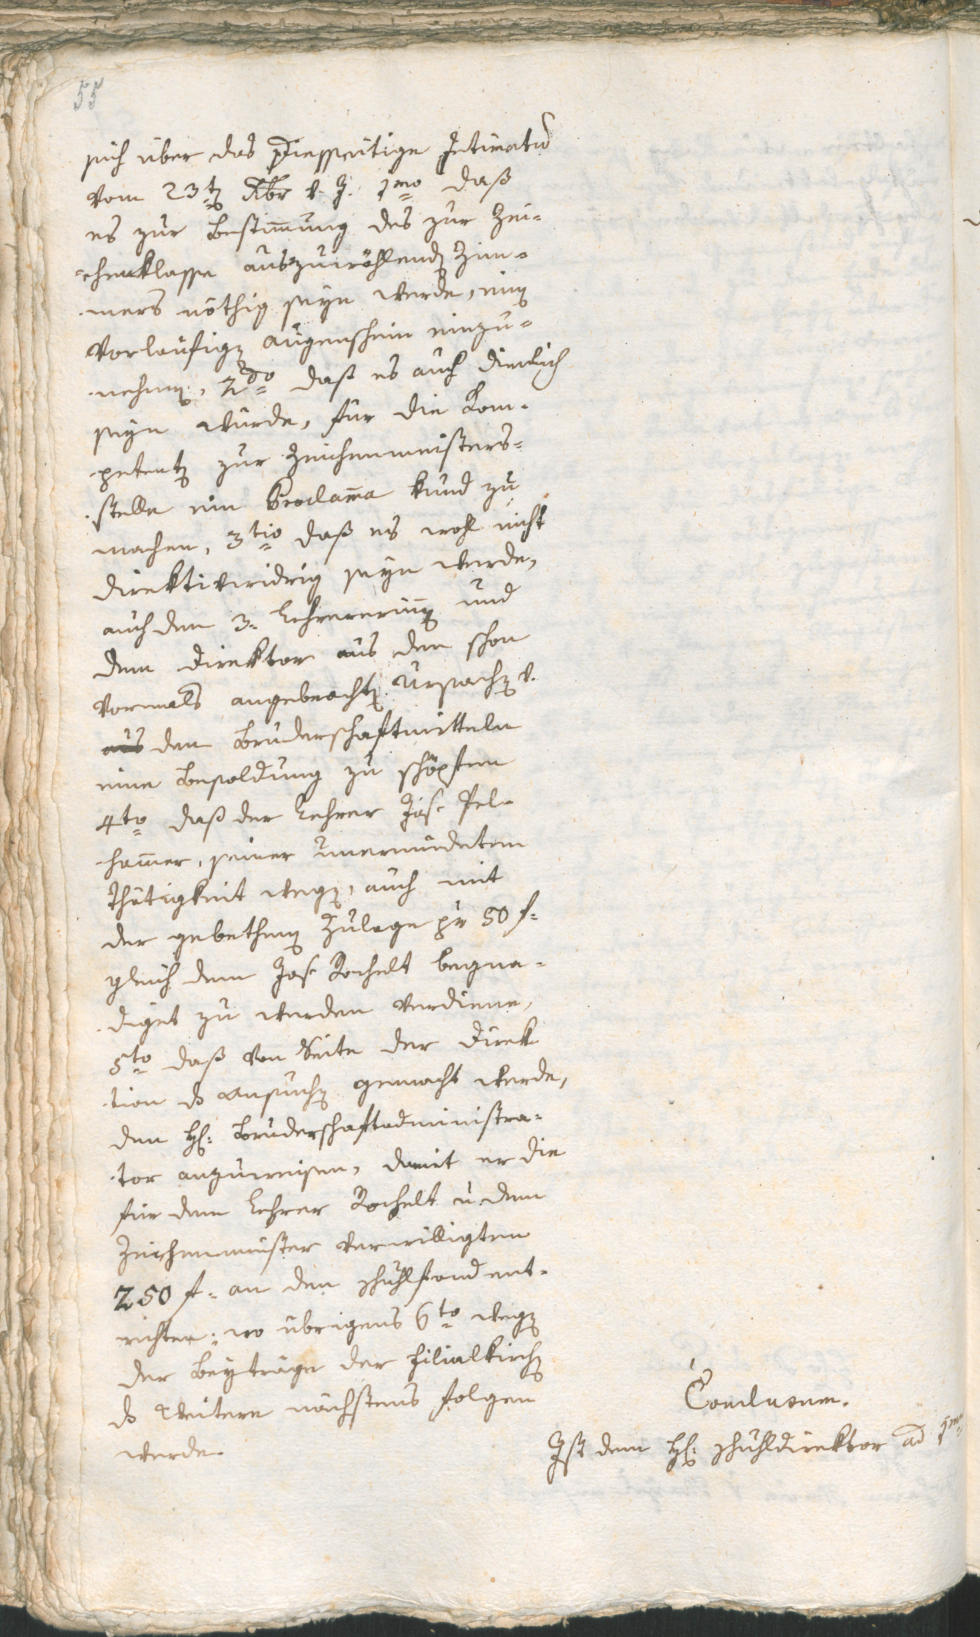 55
sich über das diesseitige Intimatum
vom 23t Xbr v. J. 1mo daß
es zur Bestimmung des zur Zei-
-chenklasse auszuwählend Zim-
mers nöthig seyn werde, ein
vorläufig augenschein einzu-
nehmen, 2do daß es auch dienlich
seyn würde, für die Kom-
petent zur Zeichenmeisters-
stelle ein Proclama kund zu
machen, 3tio daß es wohl nicht
direktivwidrig seyn werde,
auch den 3 Lehrerinen und
dem Direktor aus den schon
vormals angebracht Ursachen
aus den Bruderschaftmitteln
eine Besoldung zu schöpfen
4to daß der Lehrer Jos. Pel-
hammer, seiner unermüdeten
Thätigkeit wegen, auch mit
der gebethen Zulage pr 50 f.
gleich dem Jos. Rochelt begna-
diget zu werden verdiene,
5to daß von Seite der Direk
tion d Ansuchen gemacht werde,
den H: Bruderschaftadministra-
tor anzuweisen, damit er die
für dem Lehrer Rochelt u. dem
Zeichenmeister verwilligten
250 f. an den Schulfond ent-
richte; wo übrigens 6to wegen
der Beyträge der Filialkirchen
d Weitere nächstens folgen
werde.
Conclusum.
Ist dem H: Schuhldirektor ad 1mo